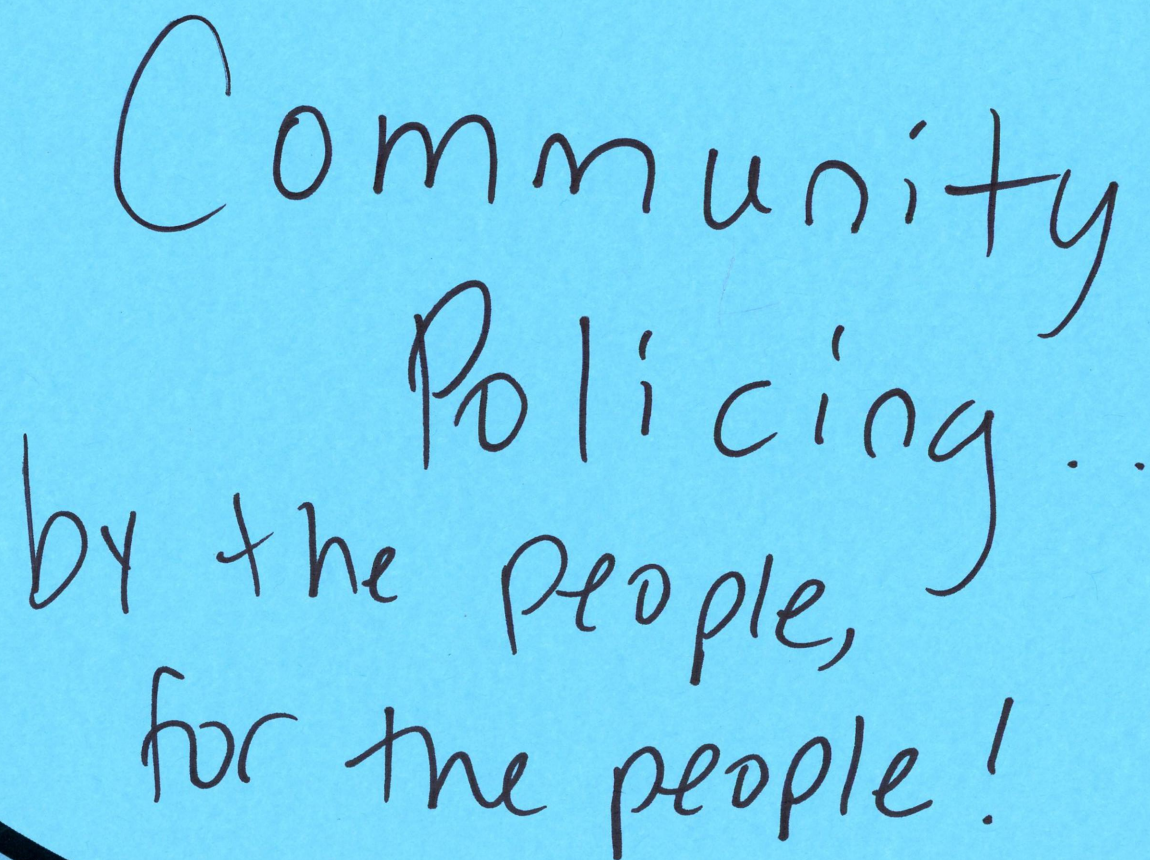 Community
Policing..
by the people,
for the people!